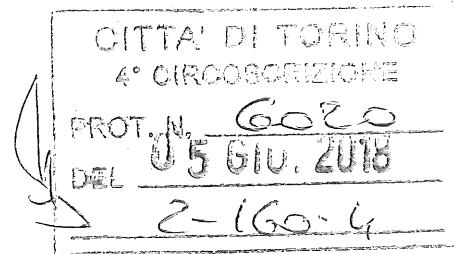 CITTA' DI TORINO
4° CIRCOSCRIZIONE
PROT. N. 6020
DEL 05 GIU. 2018
2-160-4